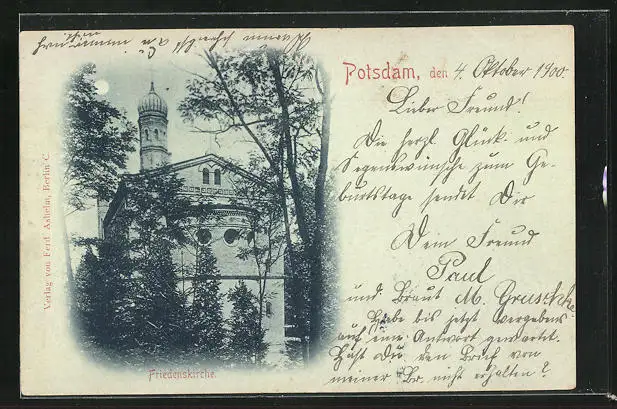 Potsdam, den 4. Oktober 1900.
Lieber Freund!
Die herzl. Glück- und
Segenswünsche zum Ge-
burtstage sendet Dir
Dein Freund
Paul
und Braut M. Gruschke
Habe bis jetzt vergebens
auf eine Antwort gewartet.
Hast Du den Brief von
meiner Br. nicht erhalten?
Friedenskirche.
Verlag von Ferd. Ashelm, Berlin C.